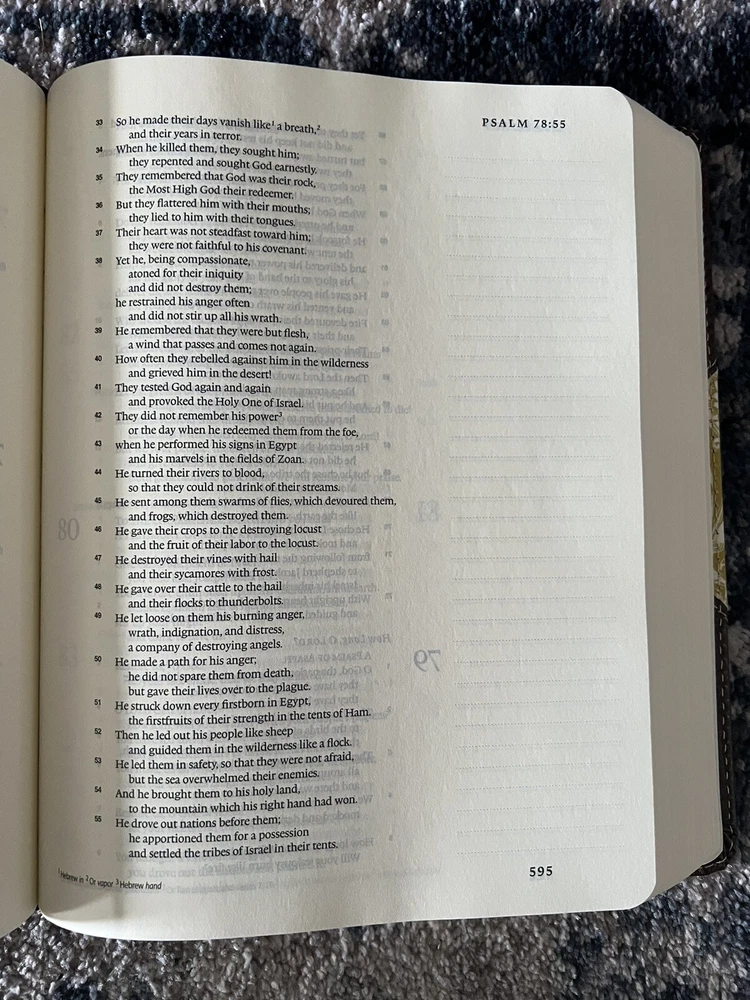 PSALM 78:55
33 So he made their days vanish like¹ a breath,²
and their years in terror.
34 When he killed them, they sought him;
they repented and sought God earnestly.
35 They remembered that God was their rock,
the Most High God their redeemer.
36 But they flattered him with their mouths;
they lied to him with their tongues.
37 Their heart was not steadfast toward him;
they were not faithful to his covenant.
38 Yet he, being compassionate,
atoned for their iniquity
and did not destroy them;
he restrained his anger often
and did not stir up all his wrath.
39 He remembered that they were but flesh,
a wind that passes and comes not again.
40 How often they rebelled against him in the wilderness
and grieved him in the desert!
41 They tested God again and again
and provoked the Holy One of Israel.
42 They did not remember his power³
or the day when he redeemed them from the foe,
43 when he performed his signs in Egypt
and his marvels in the fields of Zoan.
44 He turned their rivers to blood,
so that they could not drink of their streams.
45 He sent among them swarms of flies, which devoured them,
and frogs, which destroyed them.
46 He gave their crops to the destroying locust
and the fruit of their labor to the locust.
47 He destroyed their vines with hail
and their sycamores with frost.
48 He gave over their cattle to the hail
and their flocks to thunderbolts.
49 He let loose on them his burning anger,
wrath, indignation, and distress,
a company of destroying angels.
50 He made a path for his anger;
he did not spare them from death,
but gave their lives over to the plague.
51 He struck down every firstborn in Egypt,
the firstfruits of their strength in the tents of Ham.
52 Then he led out his people like sheep
and guided them in the wilderness like a flock.
53 He led them in safety, so that they were not afraid,
but the sea overwhelmed their enemies.
54 And he brought them to his holy land,
to the mountain which his right hand had won.
55 He drove out nations before them;
he apportioned them for a possession
and settled the tribes of Israel in their tents.
¹ Hebrew in ² Or vapor ³ Hebrew hand
595